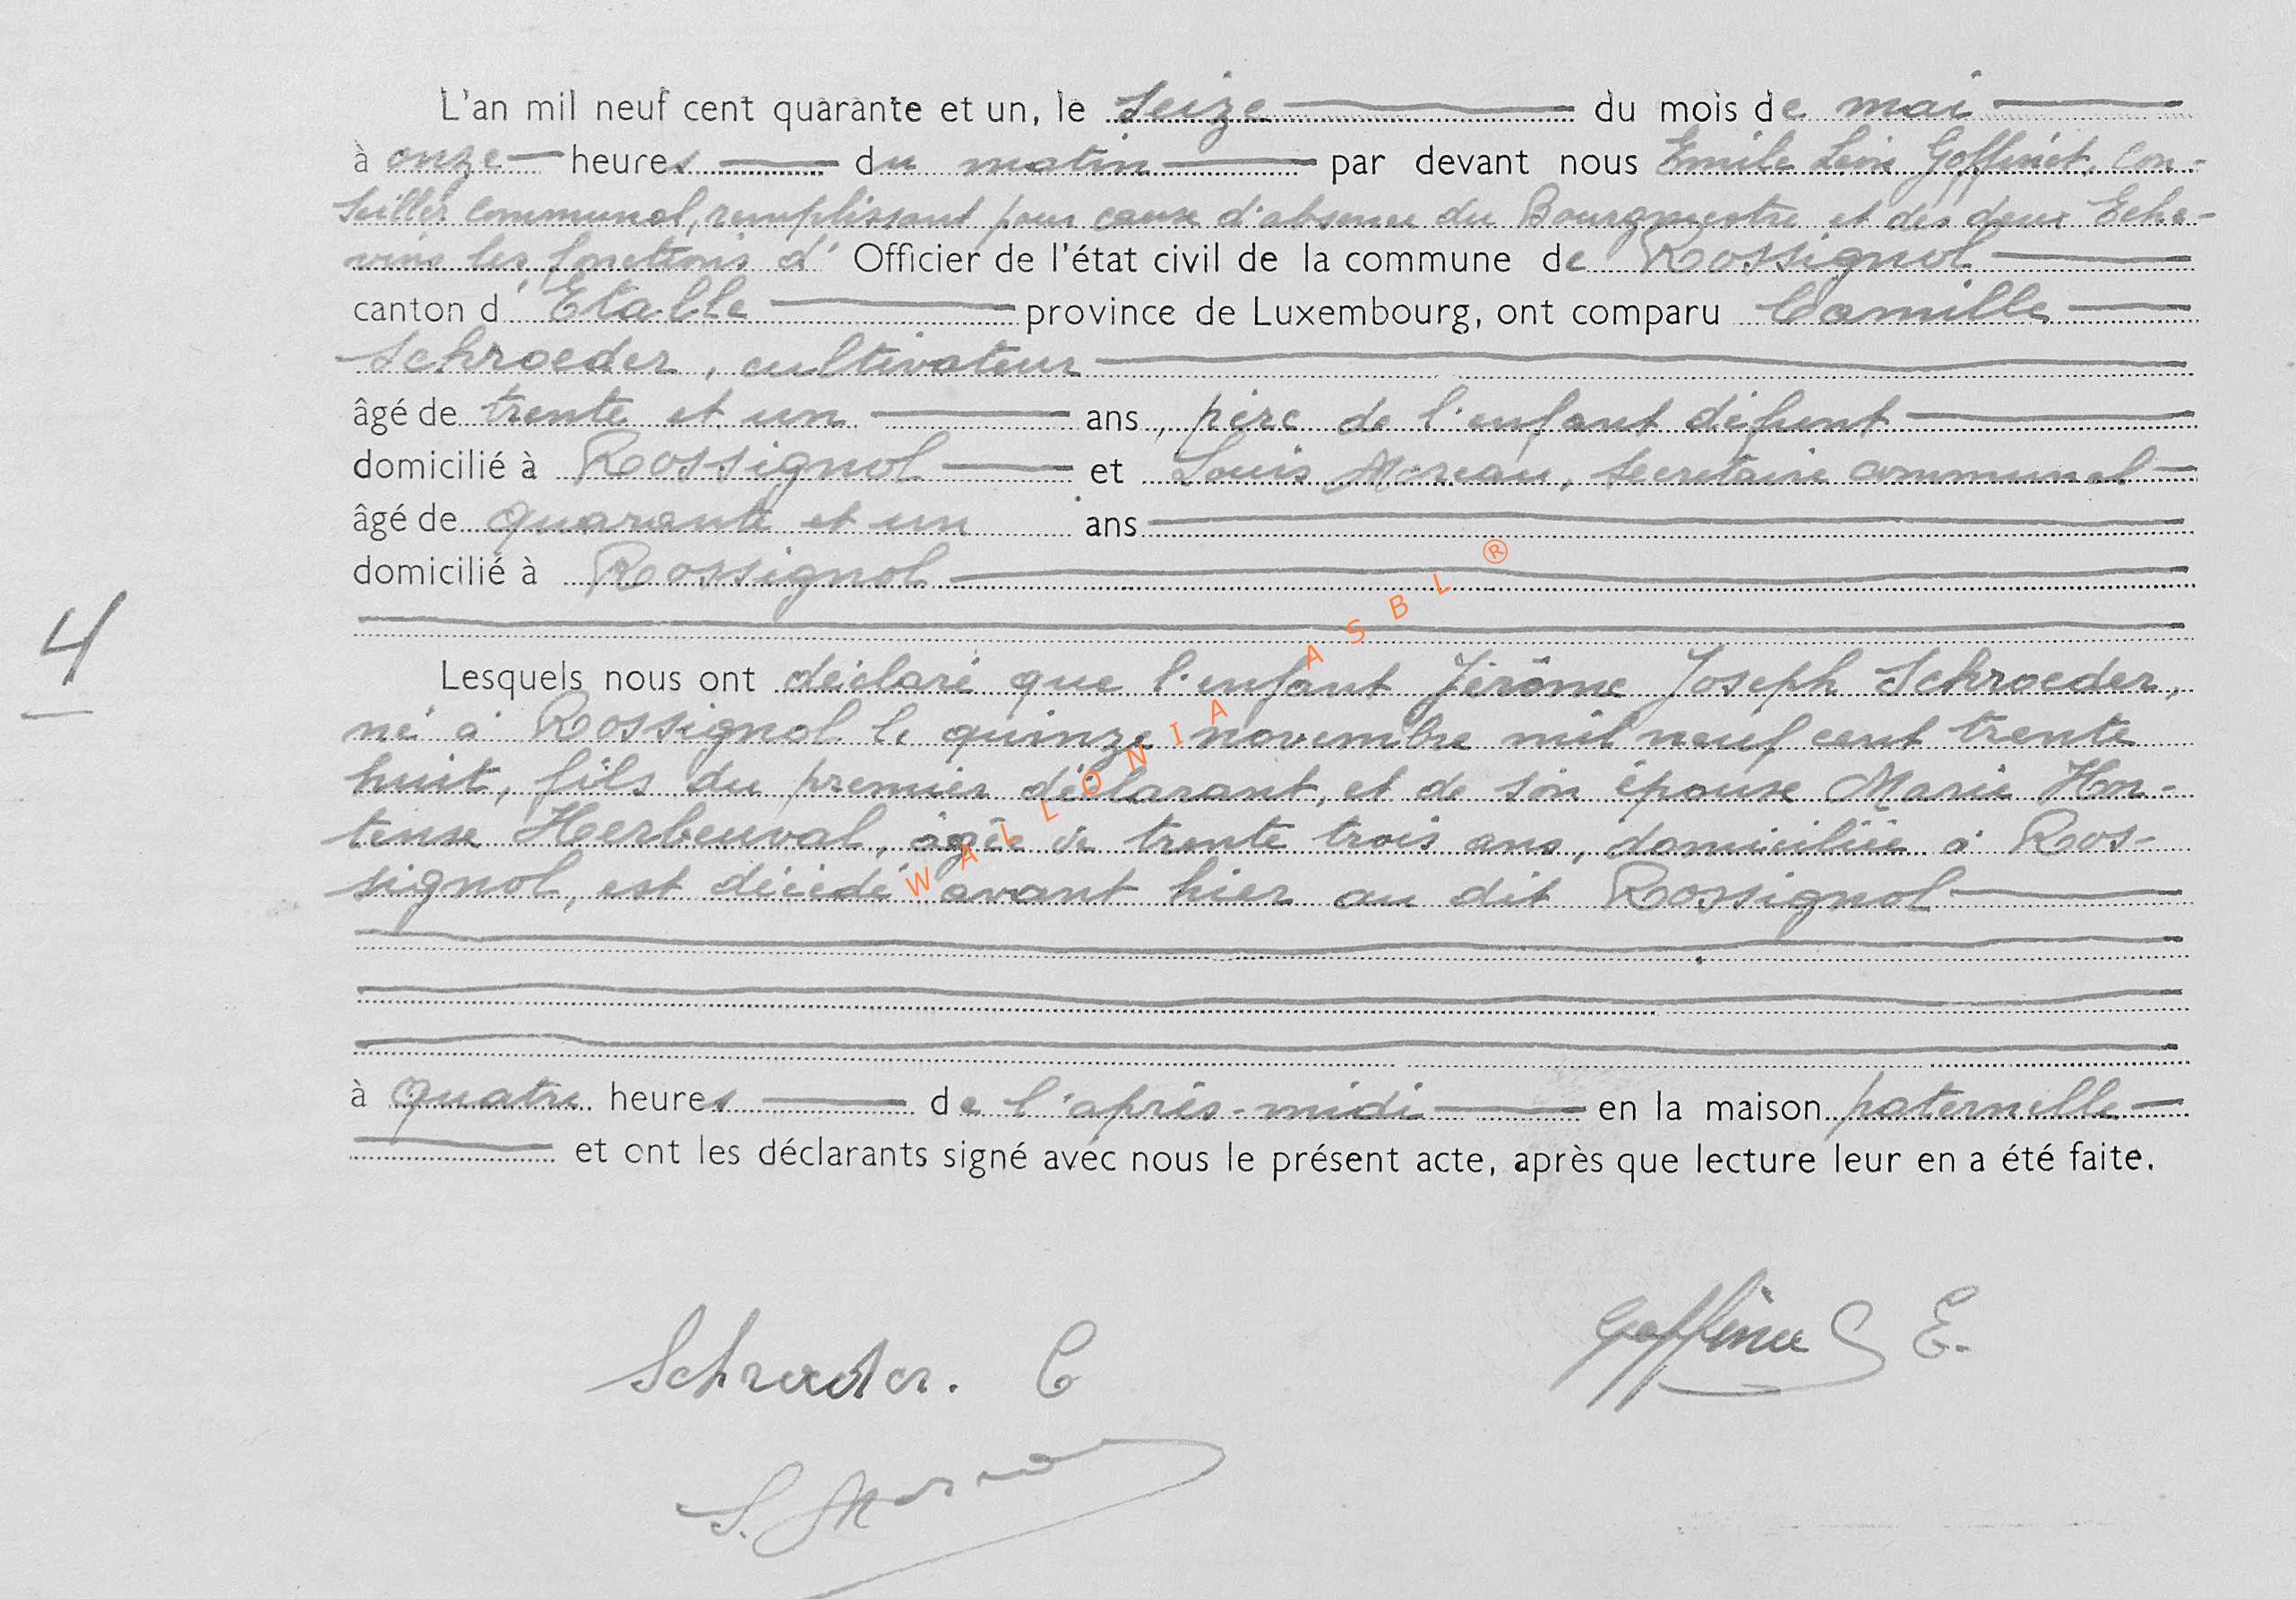 L'an mil neuf cent quarante et un, le seize du mois de mai
à onze heures du matin par devant nous Emile Léon Goffinet, con-
seiller communal, remplissant pour cause d'absence du Bourgmestre et des deux Eche-
vins les fonctions d' Officier de l'état civil de la commune de Rossignol
canton d' Etalle province de Luxembourg, ont comparu Camille
Schroeder, cultivateur
âgé de trente et un ans, père de l'enfant défunt
domicilié à Rossignol et Louis Moreau, secrétaire communal
âgé de quarante et un ans
domicilié à Rossignol
4
Lesquels nous ont déclaré que l'enfant Jérôme Joseph Schroeder,
né à Rossignol le quinze novembre mil neuf cent trente
huit, fils du premier déclarant, et de son épouse Marie Hor-
tense Herbeuval, âgée de trente trois ans, domiciliée à Ros-
signol, est décédé avant hier au dit Rossignol
à quatre heures de l'après-midi en la maison paternelle
et ont les déclarants signé avec nous le présent acte, après que lecture leur en a été faite.
Schroeder. C
Goffinet E.
L. Moreau
WALLONIA ASBL ®